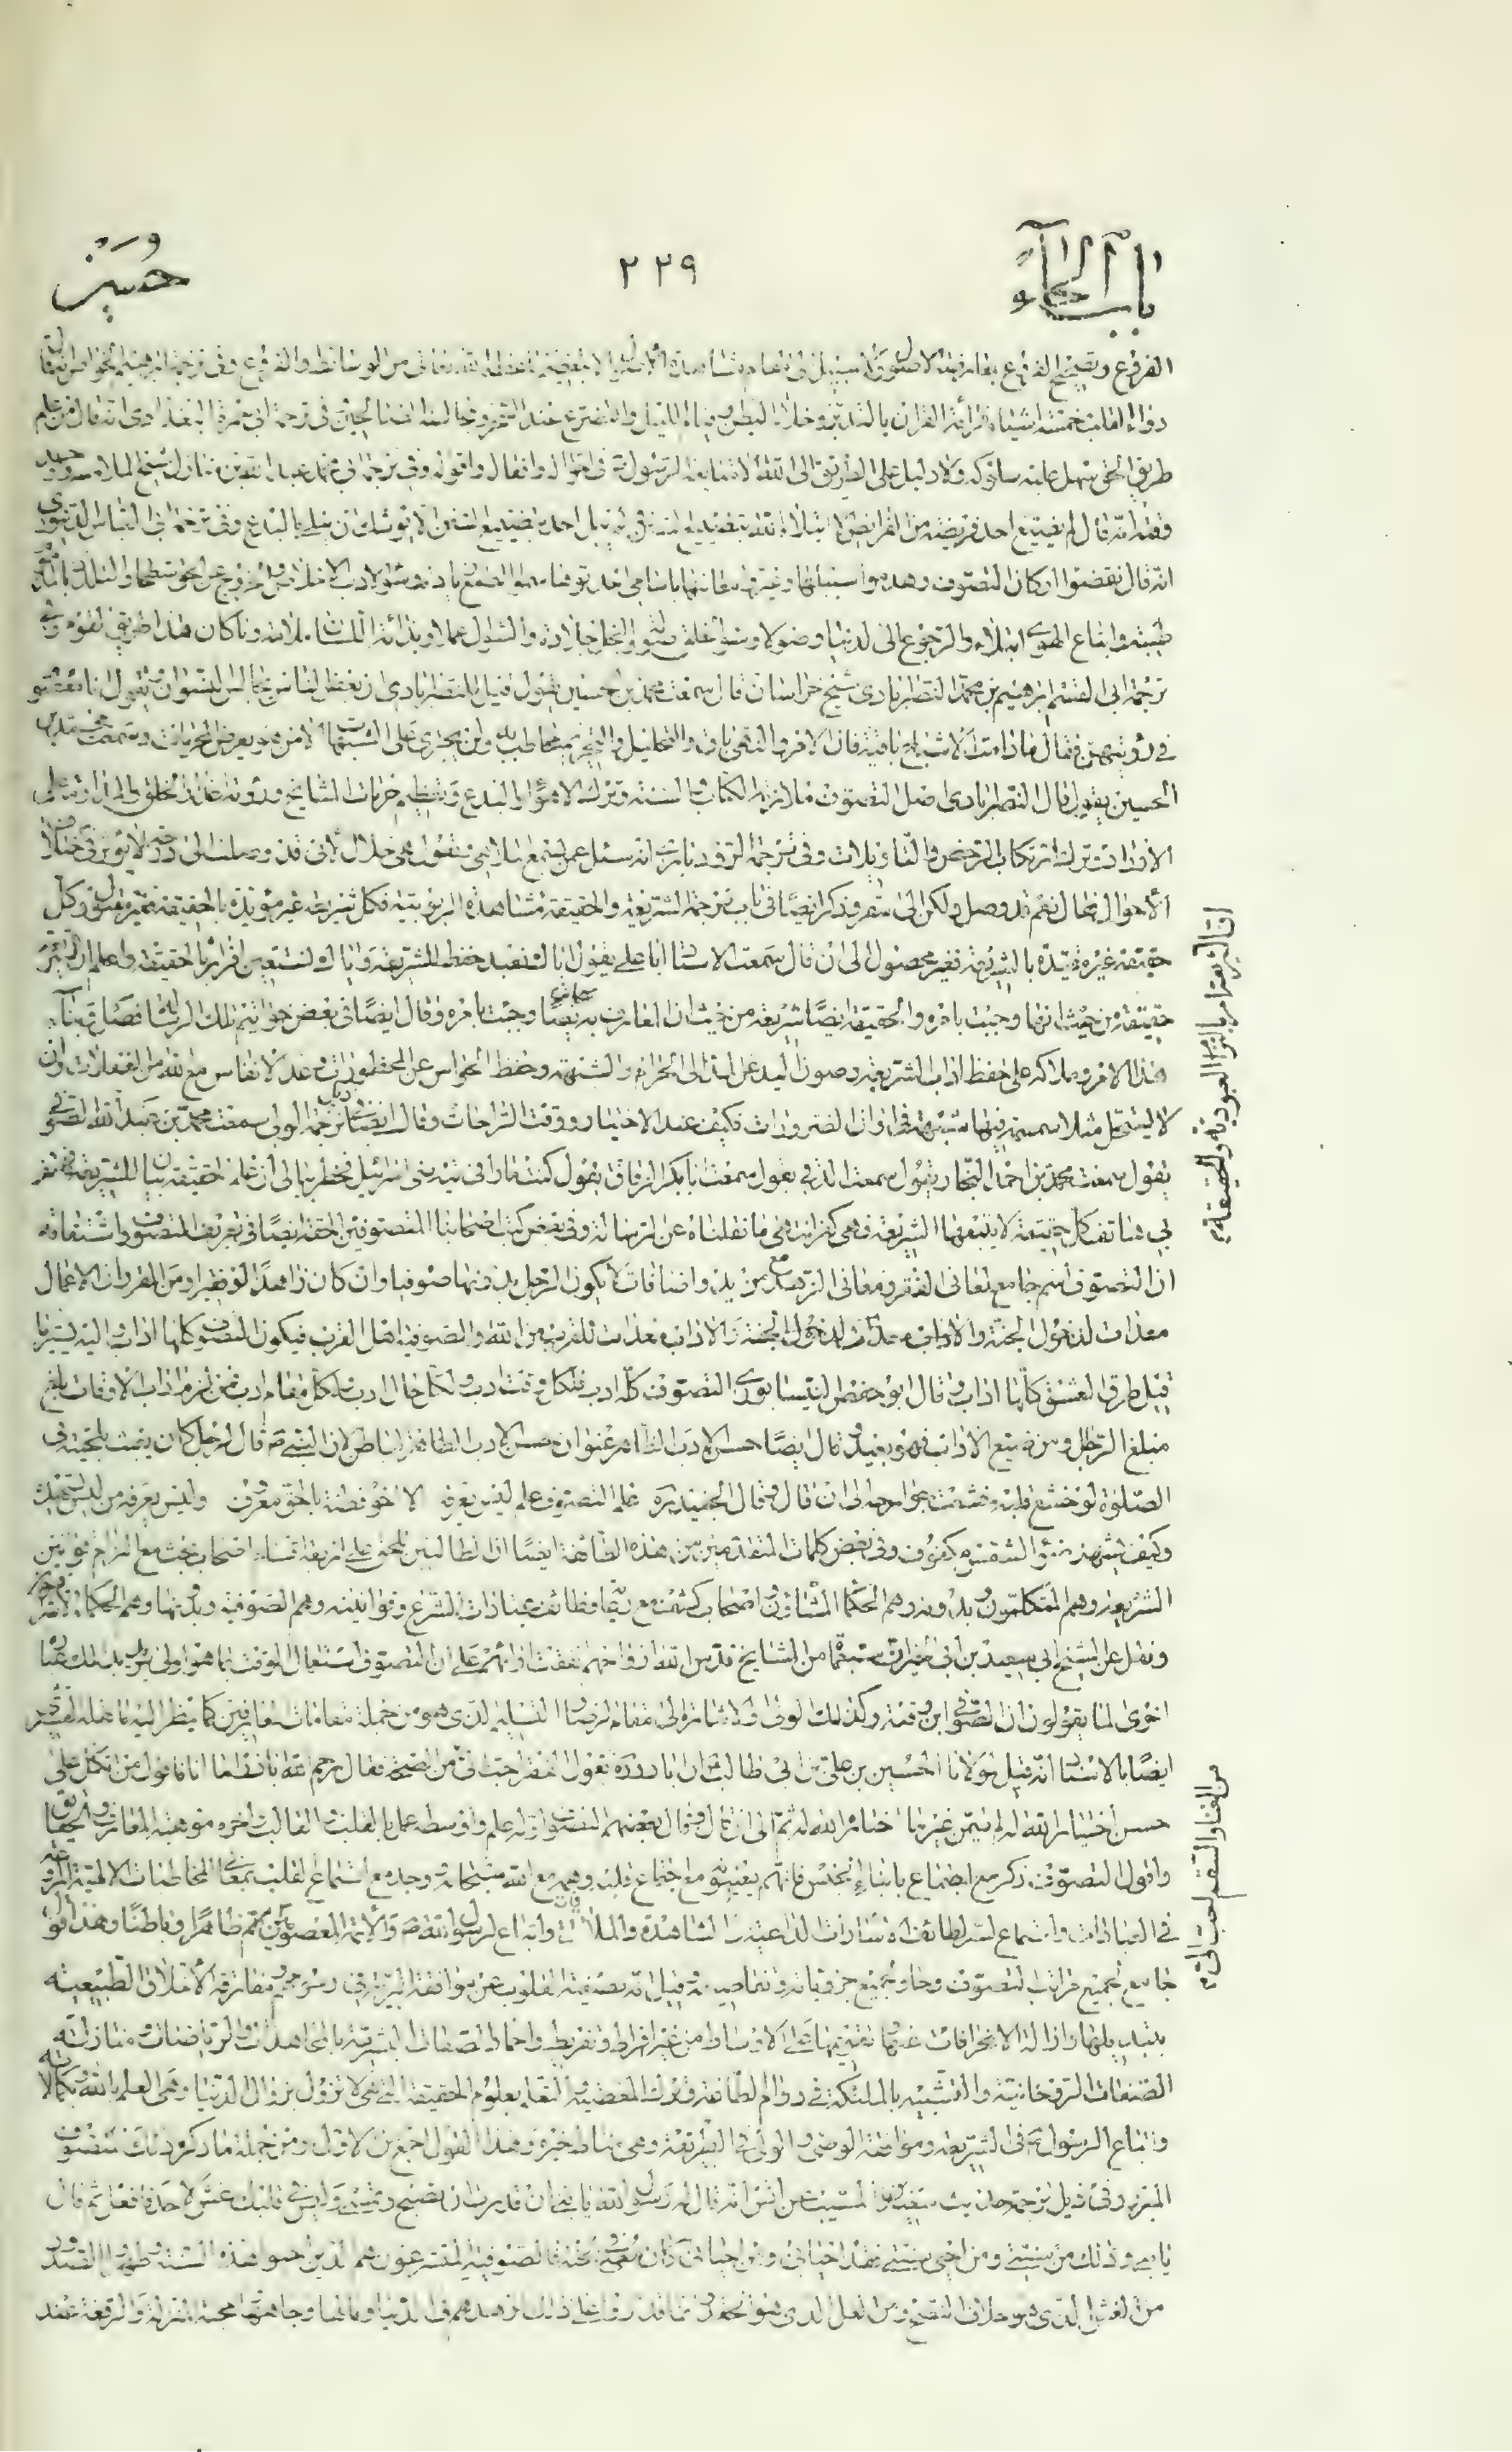 باب الحاء
٢٢٩
حسين
الفروع وتصحيح الفروع بمعارضة الاصول ولا سبيل الى مقام مشاهدة الاصول الا بتعظيم ما عظم الله تعالى من الوسائط والفروع وفى ترجمة ابرهيم الخواص انه قال
دواء القلب خمسة اشياء قرائة القران بالتدبر وخلاء البطن وقيام الليل والتضرع عند السحر ومجالسة الصالحين فى ترجمة ابى حمزة البغدادى انه قال من علم
طريق الحق سهل عليه سلوكه ولا دليل على الطريق الى الله الا متابعة الرسول فى احواله وافعاله واقواله وفى ترجمة ابى محمد عبد الله بن منازل شيخ الملامتية
وقته انه قال لم يضيع احد فريضة من الفرائض الا ابتلاه الله بتضييع السنن ولم يبتل احد بتضييع السنن الا يوشك ان يبتلى بالبدع وفى ترجمة ابى العباس الدينورى
انه قال نقضوا اركان التصوف وهدموا سبيلها وغيروا معانيها باسامى احدثوها سموا الطمع زيادة وسوء الادب اخلاصا والخروج عن الحق شطحا والتلذذ بالمذموم
طيبة واتباع الهوى ابتلاء والرجوع الى الدنيا وصولا وسوء الخلق صولة والبخل جلادة والسؤال عملا وبذائة اللسان ملامة وما كان هذا طريق القوم وفى
ترجمة ابى القسم ابرهيم بن محمد النصرابادى شيخ خراسان قال سمعت محمد بن الحسين يقول قيل للنصرابادى ان بعض الناس يجالس النسوان ويقول انا معصوم
فى رؤيتهن فقال ما دامت الاشباح باقية فان الامر والنهى باق والتحليل والتحريم مخاطب به ولن يجترى على الشبهات الا من هو يعرض للمحرمات وسمعت محمد بن
الحسين يقول قال النصرابادى اصل التصوف ملازمة الكتاب والسنة وترك الاهواء والبدع وتعظيم حرمات المشايخ ورؤية اعذار الخلق والمداومة على
الاوراد وترك ارتكاب الرخص والتاويلات وفى ترجمة الرودبارى انه سئل عمن يسمع الملاهى ويقول هى حلال لانى قد وصلت الى درجة لا يؤثر فى اختلاف
الاحوال فقال نعم قد وصل ولكن الى سقر وذكر ايضا فى باب ترجمة الشريعة والحقيقة مشاهدة الربوبية فكل شريعة غير مؤيدة بالحقيقة فغير مقبول وكل
حقيقة غير مقيدة بالشريعة فغير محصول الى ان قال سمعت الاستاد ابا على يقول اياك نعبد حفظ للشريعة واياك نستعين اقرار بالحقيقة واعلم ان الشريعة
حقيقة من حيث انها وجبت بامره والحقيقة ايضا شريعة من حيث ان المعارف به سبحانه ايضا وجبت بامره وقال ايضا فى بعض خواتيم تلك الرسالة فصل بناء
هذا الامر وملاكه على حفظ اداب الشريعة وصون اليد عن المد الى الحرام والشبهة وحفظ الحواس عن المحظورات وعد الانفاس مع الله من الغفلات وان
لا يستحل مثلا سمسمة فيها شبهة فى اوان الضرورات فكيف عند الاختيار ووقت الراحات وقال ايضا فى ذيل ترجمة الوصى سمعت محمد بن عبد الله الصوفى
يقول سمعت محمد بن احمد النجار يقول سمعت الدقى يقول سمعت ابا بكر الزقاق يقول كنت مارا فى تيه بنى اسرائيل فخطر ببالى ان علم الحقيقة مباين للشريعة فهتف
بى هاتف كل حقيقة لا يتبعها الشريعة فهى كفر انتهى ما نقلناه عن الرسالة وفى بعض كتب اصحابنا المتصوفين الحقة ايضا فى تعريف التصوف واشتقاقه
ان التصوف اسم جامع لمعانى الفقر ومعانى الزهد مع مزيد واضافات لا يكون الرجل بدونها صوفيا وان كان زاهدا او فقيرا ومن المقرر ان الاعمال
معدات لدخول الجنة والاداب معدات للقرب من الله والصوفية اهل القرب فيكون التصوف كلها اداب واليه يشير ما
قيل طرق العشق كلها اداب وقال ابو حفص النيسابورى التصوف كله ادب لكل وقت ادب ولكل حال ادب ولكل مقام ادب فمن لزم اداب الاوقات بلغ
مبلغ الرجال ومن ضيع الاداب فهو بعيد وقال ايضا حسن الادب الظاهر عنوان حسن الادب الباطن لان النبى ص قال لرجل كان يعبث بلحيته فى
الصلوة لو خشع قلبه لخشعت جوارحه الى ان قال وقال الجنيد ره علم التصوف علم ليس يعرفه الا اخو فطنة بالحق معروف وليس يعرفه من ليس يشهده
وكيف يشهد ضوء الشمس مكفوف وفى بعض كلمات المتقدمين من هذه الطائفة ايضا ان الطالبين للحق على اربعة اقسام اصحاب بحث مع التزام قوانين
الشريعة وهم المتكلمون وبدونه وهم الحكماء المشاؤن واصحاب كشف مع رعاية وظائف عبادات الشرع وقوانينه وهم الصوفية وبدونها وهم الحكماء الاشراقيون
ونقل عن الشيخ ابى سعيد بن ابى الخير ان سبعمائة من المشايخ قدس الله ارواحهم اتفقت اراؤهم على ان التصوف استعمال الوقت بما هو اولى به
اخوى لما يقولون ان الصوفى ابن وقته وكذلك
ايضا بالاستاد انه قيل لمولانا الحسين بن على بن ابى طالب ان ابا ذر ره يقول الفقر احب الى من الغنى والسقم احب الى من الصحة فقال رحم الله ابا ذر اما انا فاقول من اتكل على
حسن اختيار الله له لم يتمن غير ما اختاره الله له ثم الى ان قال وقال بعضهم التصوف اوله علم واوسطه عمل بالقلب والقالب واخره موهبة
واقول التصوف ذكر مع اجتماع
فى العبادات واستماع لسر لطائف اشارات واتباع لرسول الله ص والائمة المعصومين ع ظاهرا وباطنا وهذا القول
جامع لجميع مراتب التصوف وحاو لجميع جزئياته وتفاصيله وقيل انه تصفية القلوب عن موافقة البرية ومفارقة الاخلاق الطبيعية
بتبديلها وازالة الانحرافات عنها على الاوساط من غير افراط وتفريط واخماد الصفات البشرية بالمجاهدات والرياضات ومنازلة
الصفات الروحانية والتشبيه بالملئكة فى دوام الطاعة وترك المعصية والتعلق بعلوم الحقيقة التى هى لا تزول بزوال الدنيا وهى العلم بالله
واتباع الرسول ص فى الشريعة وهذا القول اجمع من الاول ومن جملة ما ذكره ذلك
وفى ذيل ترجمة حديث سعيد بن المسيب عن انس انه قال له رسول الله يا بنى ان قدرت ان تصبح وتمسى وليس فى قلبك غش لاحد فافعل ثم قال
يا بنى وذلك من سنتى ومن احيى سنتى فقد احيانى ومن احيانى كان معى فى الجنة فالصوفية المتشرعون هم الذين احيوا هذه السنة وطهروا الصدور
من الغش الذى هو خلاف النصح ومن الغل الذى هو الحقد وانما قدروا على ذلك لزهدهم فى الدنيا ومالها وجاهها ومحبة المنزلة والرفعة عند
اقول الشريعة امر بالتزام العبودية والحقيقة
من الغنا والسقم احب الى م